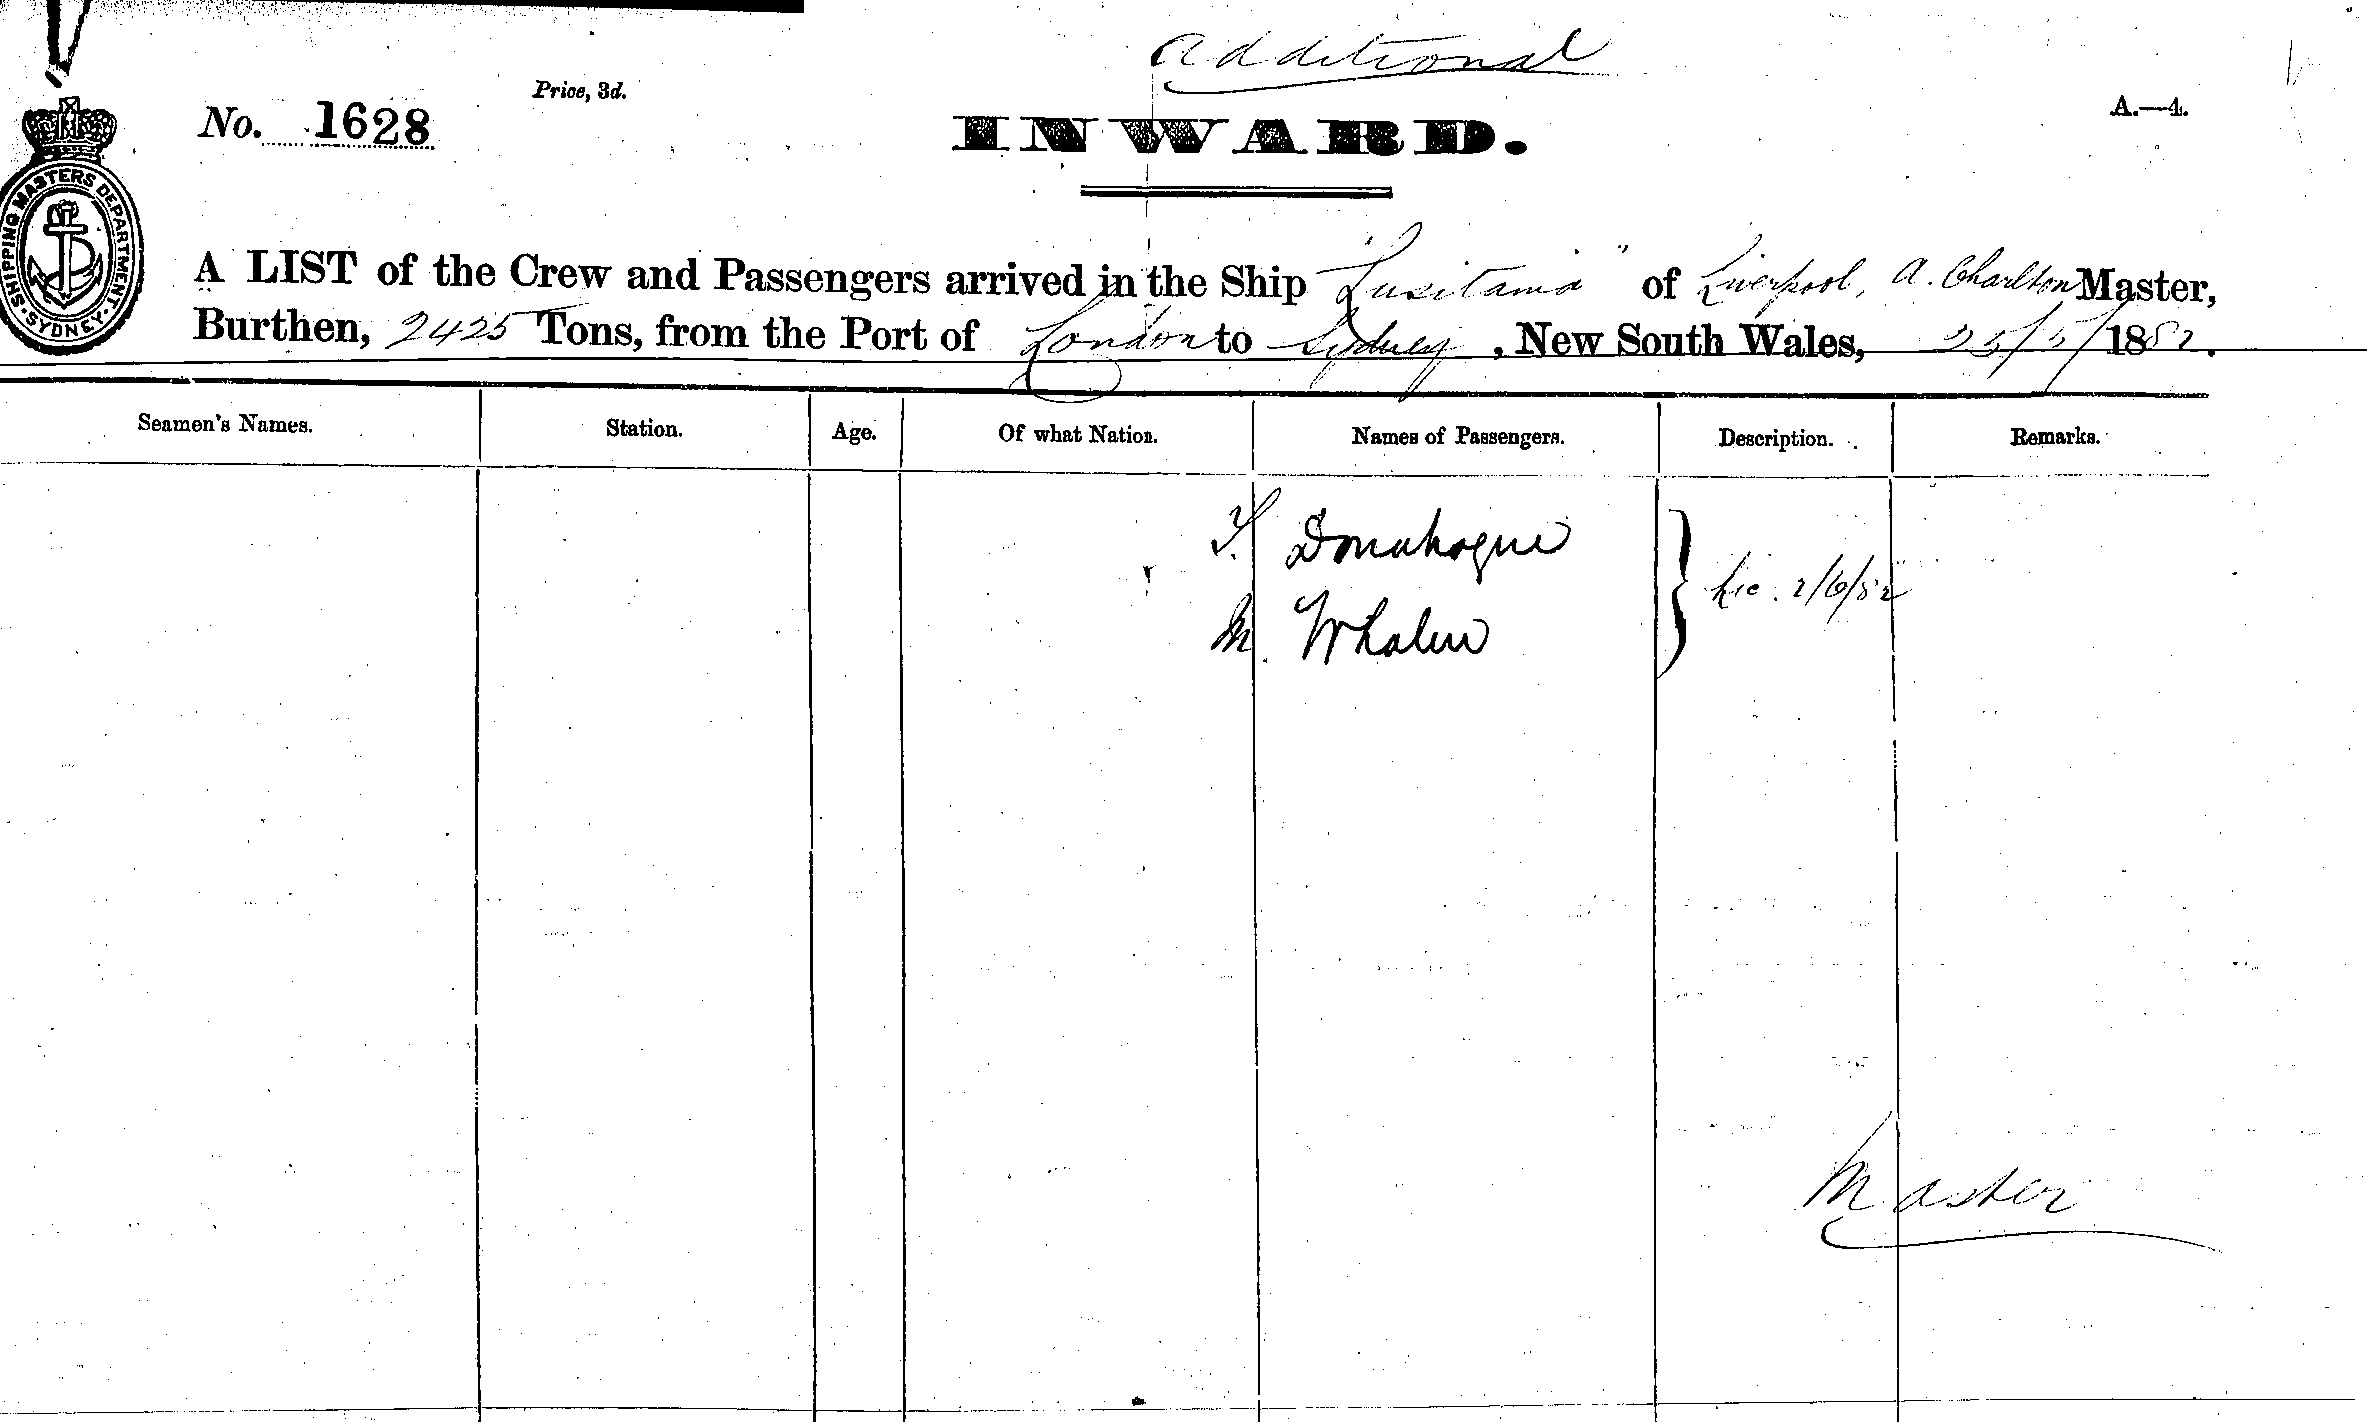 additional
Price, 3d.
A.—4.
No. 1628
INWARD.
SHIPPING MASTERS DEPARTMENT · SYDNEY ·
A LIST of the Crew and Passengers arrived in the Ship "Lusitania" of Liverpool, A. Charlton Master,
Burthen, 2425 Tons, from the Port of London to Sydney, New South Wales, 25/5/1882.
Seamen's Names. Station. Age. Of what Nation. Names of Passengers. Description. Remarks.
T. Donahogue
2/6/82
M. Whalen
Master